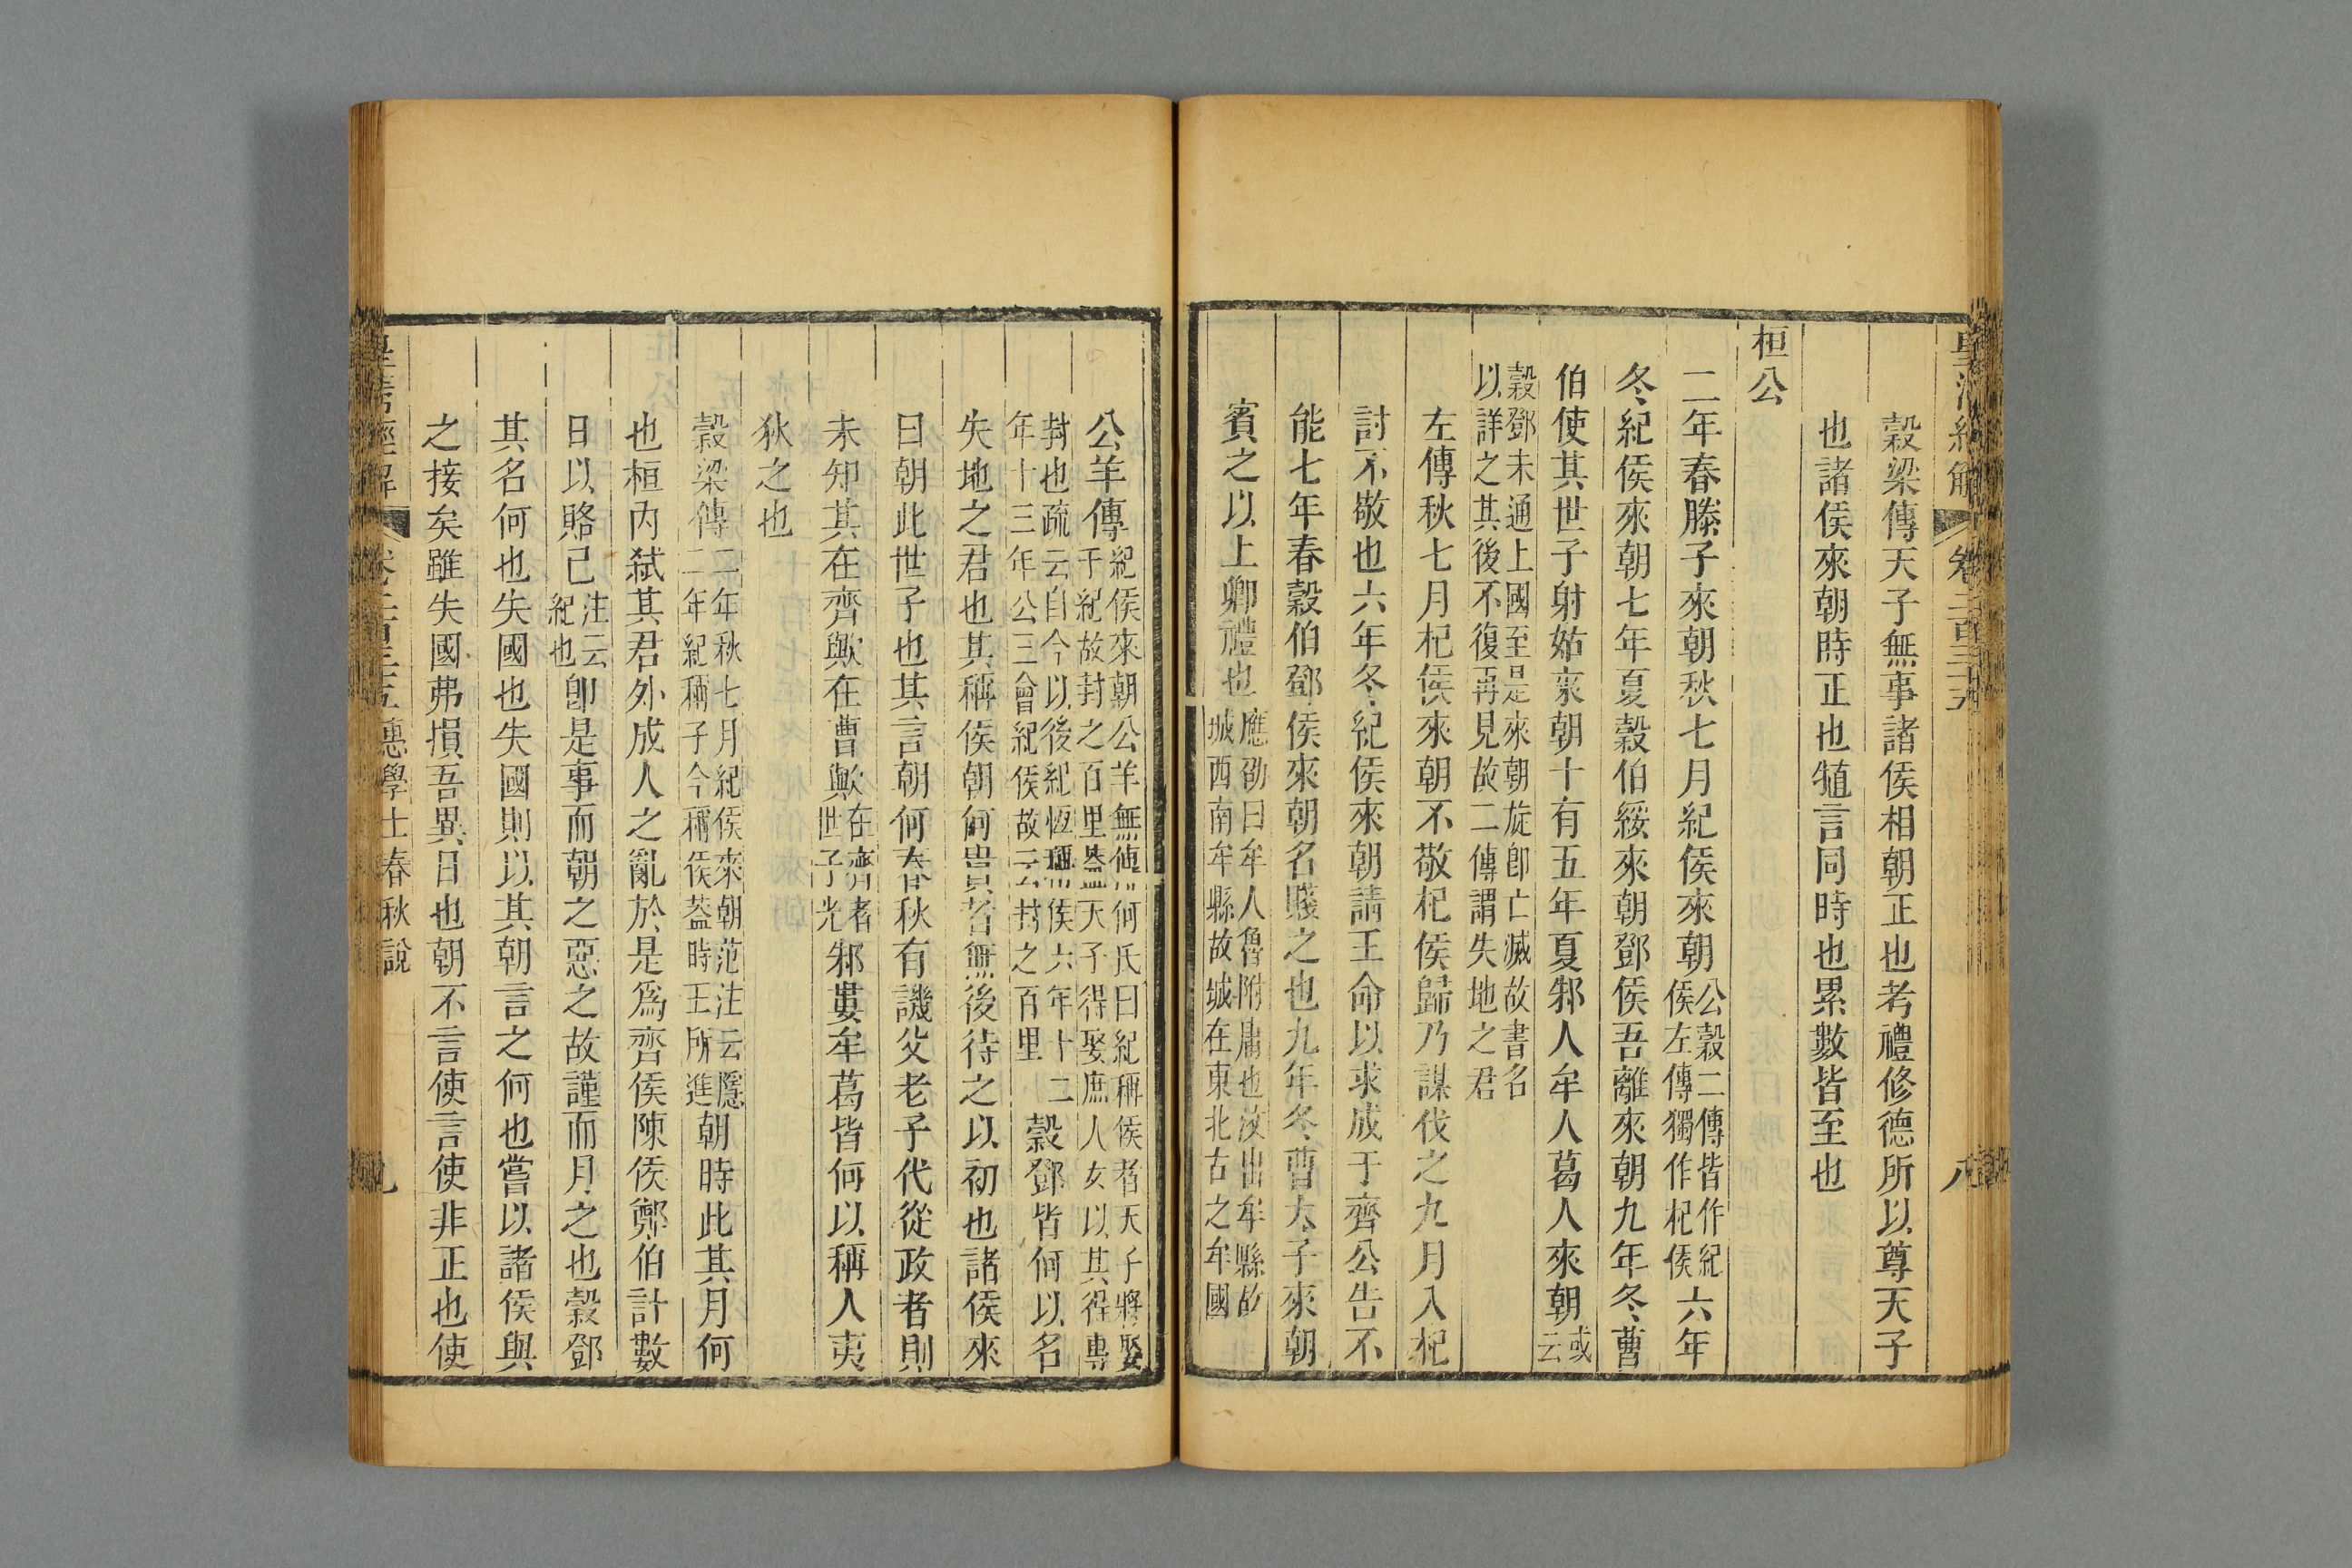 皇清經解 卷二百三十五 八
穀梁傳天子無事諸侯相朝正也考禮修德所以尊天子
也諸侯來朝時正也犆言同時也累數皆至也
桓公
二年春滕子來朝秋七月紀侯來朝公穀二傳皆作紀侯左傳獨作杞侯六年
冬紀侯來朝七年夏穀伯綏來朝鄧侯吾離來朝九年冬曹
伯使其世子射姑來朝十有五年夏邾人牟人葛人來朝或云
穀鄧未通上國至是來朝旋卽亡滅故書名
以詳之其後不復再見故二傳謂失地之君
左傳秋七月杞侯來朝不敬杞侯歸乃謀伐之九月入杞
討不敬也六年冬紀侯來朝請王命以求成于齊公告不
能七年春穀伯鄧侯來朝名賤之也九年冬曹大子來朝
賓之以上卿禮也應劭曰牟人魯附庸也汝出牟縣故城西南牟縣故城在東北古之牟國
公羊傳紀侯來朝公羊無傳何氏曰紀稱侯者天子將娶于紀故封之百里蓋天子得娶庶人女以其得專
封也疏云自今以後紀恆稱侯六年十二年十三年公三會紀侯故云封之百里穀鄧皆何以名
失地之君也其稱侯朝何貴者無後待之以初也諸侯來
曰朝此世子也其言朝何春秋有譏父老子代從政者則
未知其在齊歟在曹歟在齊者世子光邾婁牟葛皆何以稱人夷
狄之也
穀梁傳二年秋七月紀侯來朝范注云隱二年紀稱子今稱侯葢時王所進朝時此其月何
也桓內弑其君外成人之亂於是爲齊侯陳侯鄭伯計數
日以賂己注云紀也卽是事而朝之惡之故謹而月之也穀鄧
其名何也失國也失國則以其朝言之何也嘗以諸侯與
之接矣雖失國弗損吾異日也朝不言使言使非正也使
皇清經解 卷二百三十五 惠學士春秋說 九